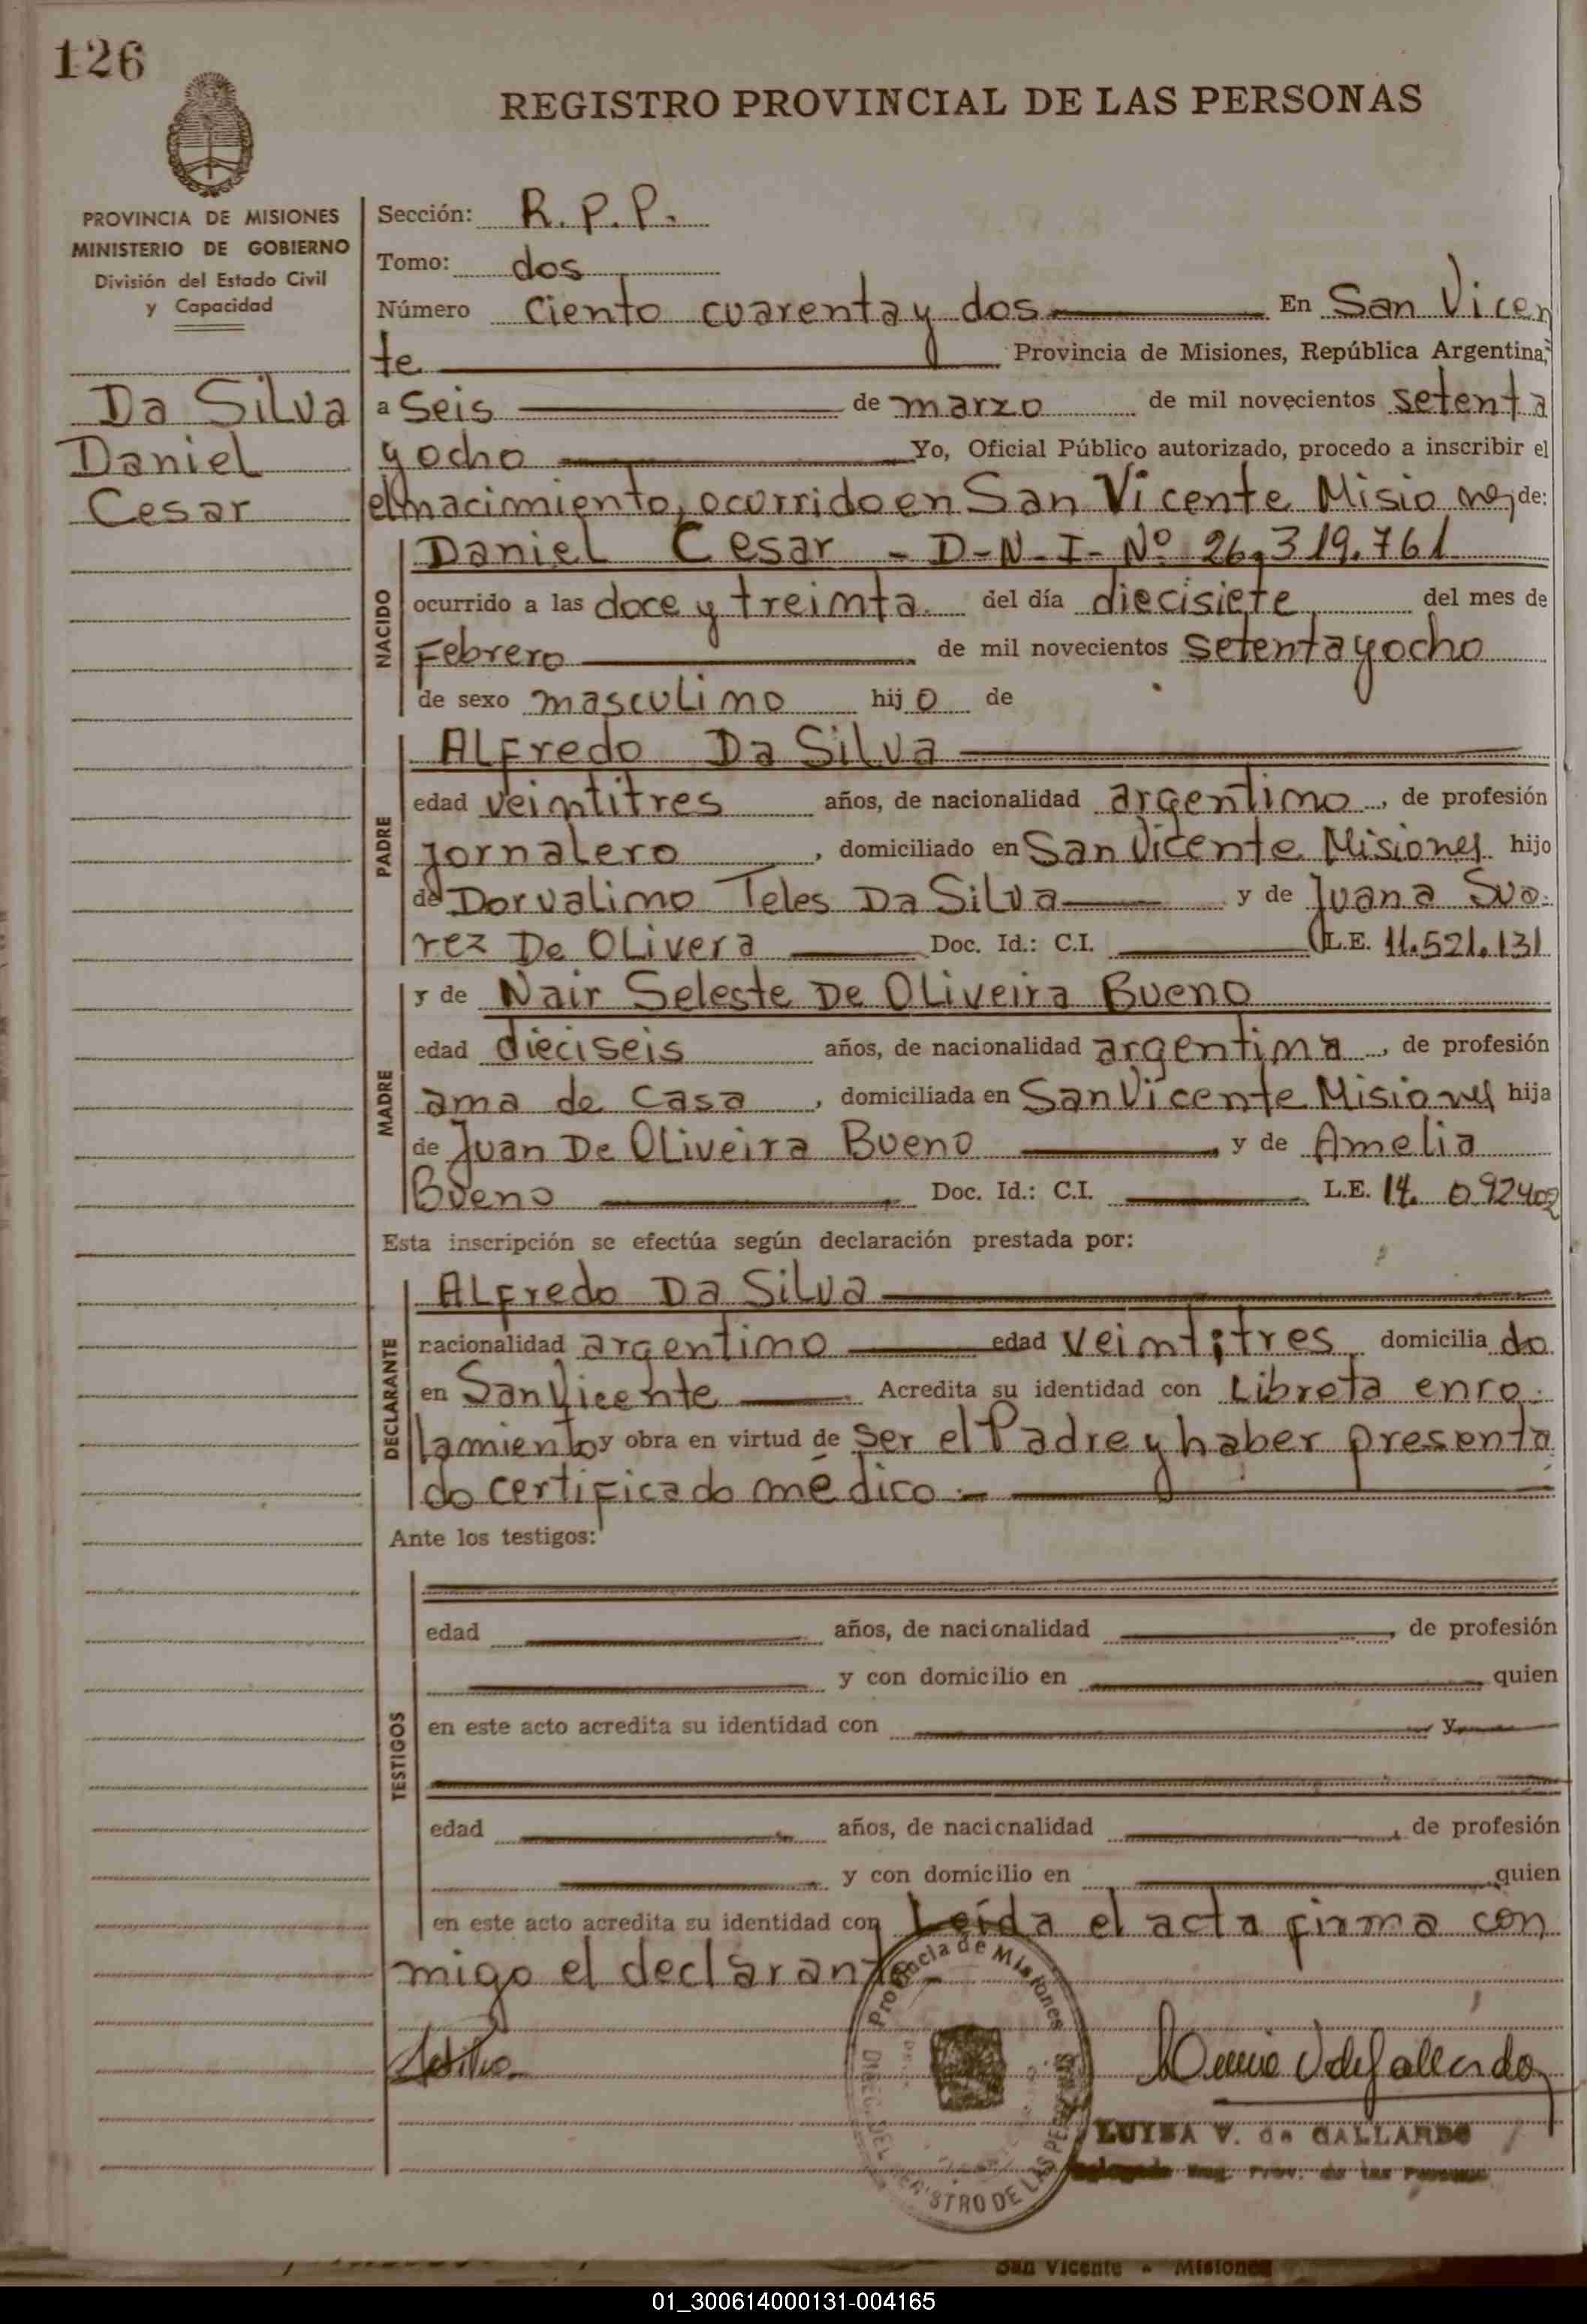 126
REGISTRO PROVINCIAL DE LAS PERSONAS
PROVINCIA DE MISIONES
MINISTERIO DE GOBIERNO
División del Estado Civil
y Capacidad
Da Silva
Daniel
Cesar
Sección: R.P.P.
Tomo: dos
Número Ciento cuarenta y dos En San Vicen
te Provincia de Misiones, República Argentina,
a Seis de marzo de mil novecientos setenta
y ocho Yo, Oficial Público autorizado, procedo a inscribir el
el nacimiento, ocurrido en San Vicente Misiones de:
NACIDO
Daniel Cesar - D-N-I- Nº 26.319.761
ocurrido a las doce y treinta. del día diecisiete del mes de
Febrero de mil novecientos setenta y ocho
de sexo masculino hijo de
PADRE
Alfredo Da Silva
edad veintitres años, de nacionalidad argentino, de profesión
jornalero, domiciliado en San Vicente Misiones hijo
de Dorvalino Teles Da Silva y de Juana Sua.
rez De Olivera Doc. Id.: C.I. L.E. 11.521.131
MADRE
y de Nair Seleste De Oliveira Bueno
edad dieciseis años, de nacionalidad argentina, de profesión
ama de casa, domiciliada en San Vicente Misiones hija
de Juan De Oliveira Bueno y de Amelia
Bueno Doc. Id.: C.I. L.E. 14. 092402
Esta inscripción se efectúa según declaración prestada por:
DECLARANTE
Alfredo Da Silva
nacionalidad argentino edad veintitres domiciliado
en San Vicente Acredita su identidad con Libreta enro.
lamiento y obra en virtud de ser el Padre y haber presenta
do certificado médico.-
Ante los testigos:
TESTIGOS
edad años, de nacionalidad, de profesión
y con domicilio en, quien
en este acto acredita su identidad con y
edad años, de nacionalidad, de profesión
y con domicilio en quien
en este acto acredita su identidad con Leída el acta firma con
migo el declarante-
Provincia de Misiones
DIREC. DEL REGISTRO DE LAS PERS
LUISA V. de GALLARDO
Delegada Reg. Prov. de las Personas
San Vicente - Misiones
01_300614000131-004165